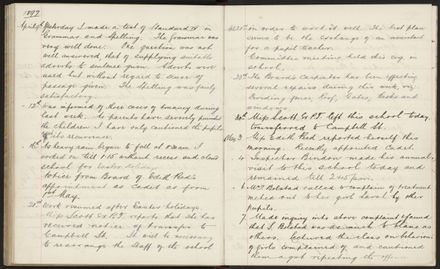 1897
April 9th Yesterday I made a test of Standard IV in
Grammar and Spelling. The Grammar was
very well done. One question was not
well answered, that of supplying suitable
adverbs to sentence given. Adverbs were
used but without regard to sense of
passage given. The Spelling was fairly
satisfactory.
13th Was informed of three cases of truancy during
last week. As parents have severely punished
the children I have only cautioned the pupils
As heavy rain began to fall at 12 a.m. I
worked on till 1.15 without recess and closed
school for
Notice from Board of Edith Reid's
appointment as Cadet as from
1st May.
21st Work resumed after Easter holidays.
Miss Scott Ex P.T. reports that she has
received notice of transfer to
Campbell St. It will be necessary
to rearrange the staff of the school
in order to work it well. The best plan
seems to be the exchange of an assistant
for a pupil teacher.
Committee meeting held this evg in
school.
The Board's Carpenter has been effecting
several repairs during this week, viz
flooring, fence, Roof, Gates, locks and
windows.
30th Miss Scott Ex P.T. left this school today
transferred to Campbell St.
May 3 Miss Edith Reid reported herself this
morning. Recently appointed Cadet.
4 Inspector Bendow made his annual
visit to this School today and
remained till 2.45 p.m.
6 Mrs Bolstad called to complain of treatment
meted out to her girl Sarah by other
pupils.
7. Made inquiry into above complaint & found
that S. Bolstad was as much to blame as
others. Lectured the class on behaviour
of girls complained of and cautioned
them against repeating the offence